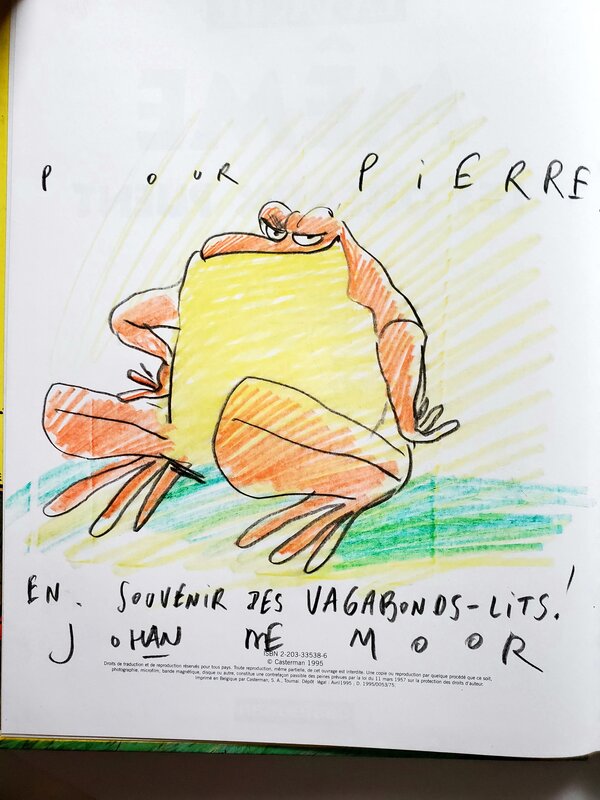 POUR PiERRE
EN. SOUVENIR DES VAGABONDS-LiTS!
JOHAN DE MOOR
ISBN 2-203-33538-6
© Casterman 1995
Droits de traduction et de reproduction réservés pour tous pays. Toute reproduction, même partielle, de cet ouvrage est interdite. Une copie ou reproduction par quelque procédé que ce soit,
photographie, microfilm, bande magnétique, disque ou autre, constitue une contrefaçon passible des peines prévues par la loi du 11 mars 1957 sur la protection des droits d'auteur.
Imprimé en Belgique par Casterman, S. A., Tournai. Dépôt légal : Avril 1995 ; D. 1995/0053/75.